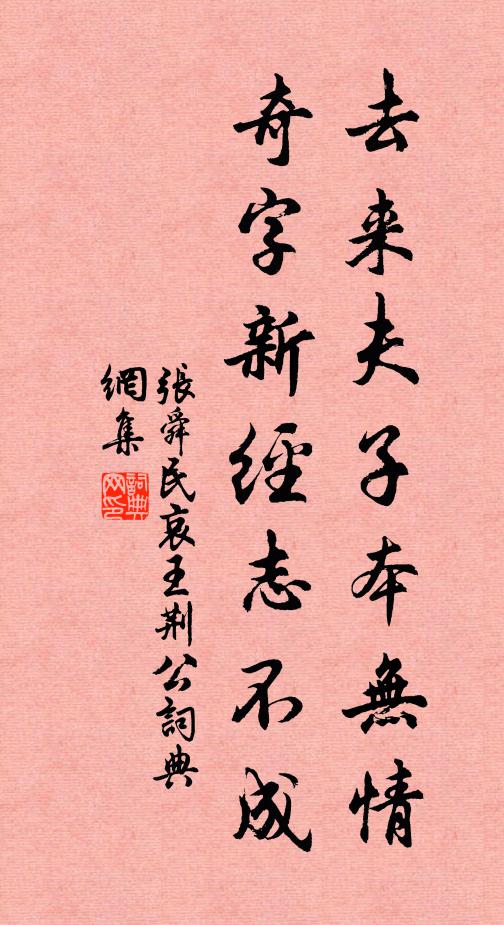 去来夫子本無情
奇字新經志不成
張舜民哀王荆公詞典
網集
詞典
网印